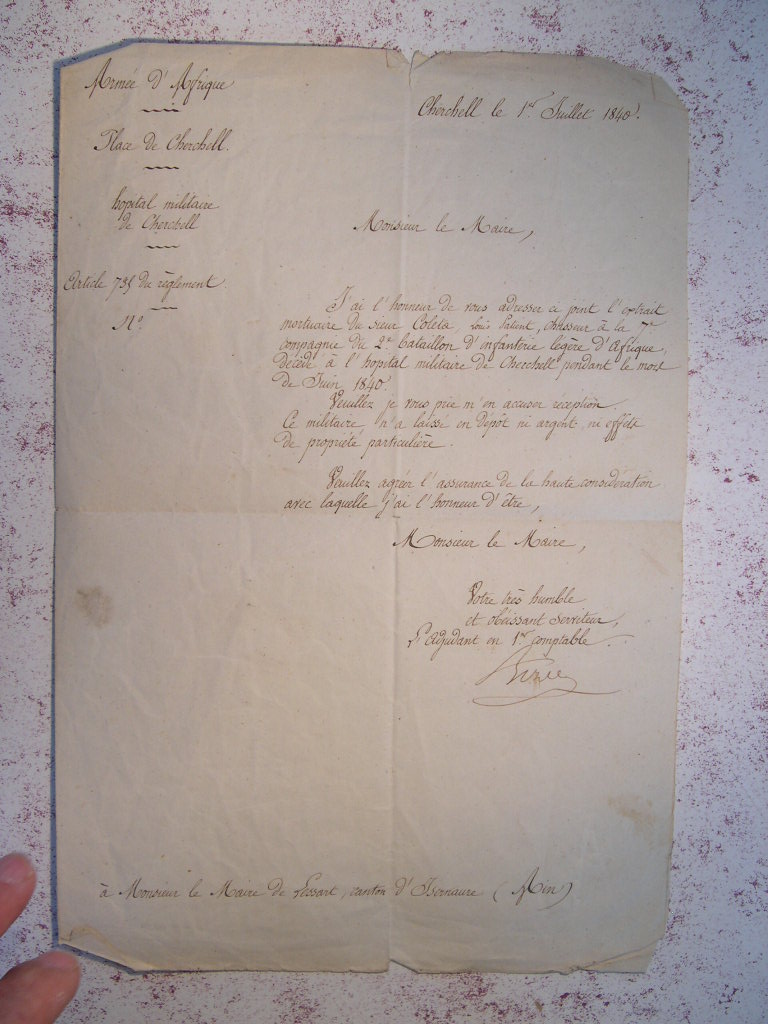 Armée d'Afrique
Place de Cherchell.
hopital militaire
de Cherchell
Article 735 du règlement
N°
Cherchell le 1er Juillet 1840.
Monsieur le Maire,
J'ai l'honneur de vous adresser ci joint l'extrait
mortuaire du sieur Coleta, Louis Patient, chasseur à la 7e
compagnie du 2e bataillon d'infanterie legère d'Afrique,
Décédé à l'hopital militaire de Cherchell pendant le mois
de Juin 1840.
Veuillez je vous prie m'en accuser réception.
Ce militaire n'a laissé en dépôt ni argent ni effets
de propriété particulière.
Veuillez agréer l'assurance de la haute considération
avec laquelle j'ai l'honneur d'être,
Monsieur le Maire,
Votre très humble
et obéissant serviteur,
L'adjudant en 1er comptable.
à Monsieur le Maire de Lessart, canton d'Isernaure (Ain)